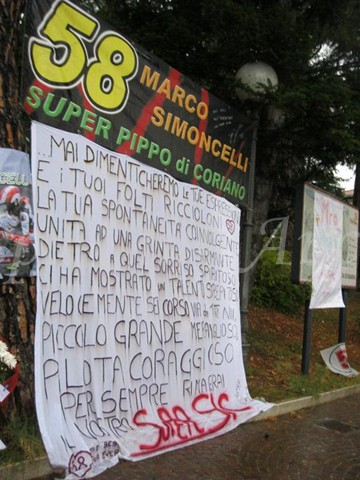 58
MARCO
SIMONCELLI
SUPER PIPPO di CORIANO
... MAI DIMENTICHEREMO LE TUE
E I TUOI FOLTI RICCIOLONI
LA TUA SPONTANEITÀ COINVOLGENTE
UNITA AD UNA GRINTA DISARMANTE
DIETRO A QUEL SORRISO
CI HA MOSTRATO UN TALENTO
VELOCEMENTE SEI CORSO VIA
PICCOLO GRANDE MERAVIGLIOSO
PILOTA CORAGGIOSO
PER SEMPRE RIMARRAI
IL NOSTRO
SUPER SIC
58